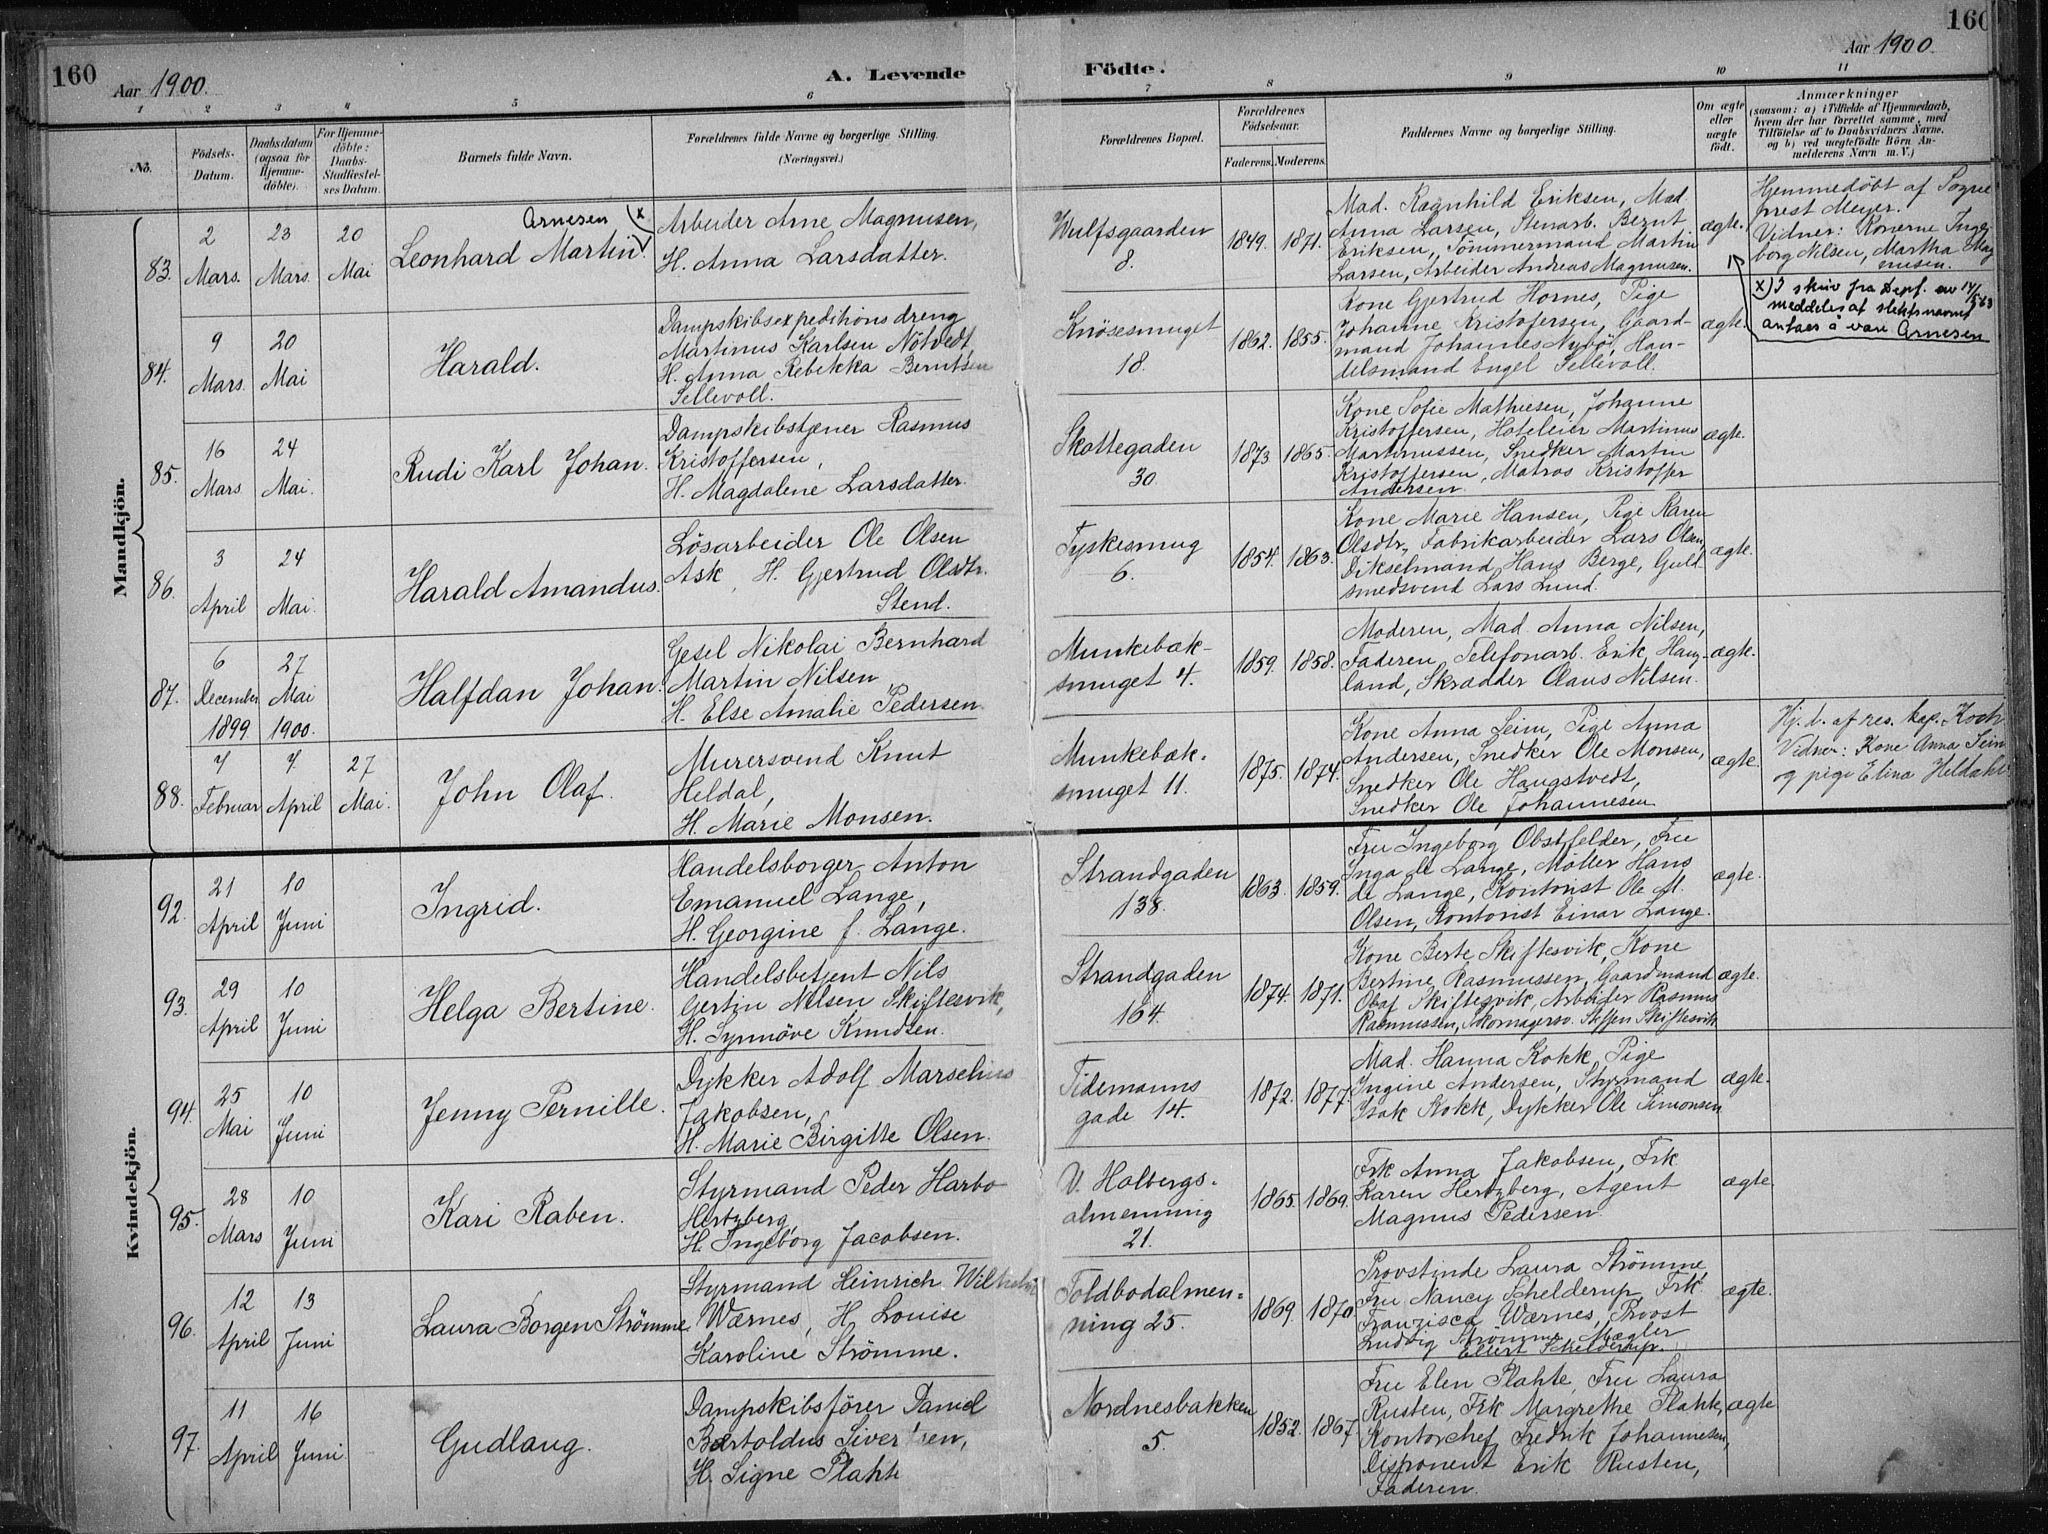 160
Aar 1900.
A. Levende
Födte.
Aar 1900.
160
1 2 3 4 5 6 7 8 9 10 11
No.
Födsels-
Datum.
Daabsdatum
(ogsaa for
Hjemme-
döbte).
For Hjemme-
döbte:
Daabs-
Stadfæstel-
ses Datum.
Barnets fulde Navn.
Forældrenes fulde Navne og borgerlige Stilling.
(Næringsvei.)
Forældrenes Bopæl.
Forældrenes
Födselsaar.
Faderens.
Moderens.
Faddernes Navne og borgerlige Stilling.
Om ægte
eller
uægte
födt.
Anmærkninger
(saasom: a) i Tilfælde af Hjemmedaab,
hvem der har forrettet samme, med
Tilföielse af to Daabsvidners Navne,
og b) ved uægtefödte Börn An-
melderens Navn m. V.)
Mandkjön.
83.
2
Mars.
23
Mars.
20
Mai
Arnesen (x
Leonhard Martin
Arbeider Arne Magnusen,
H. Anna Larsdatter.
Wulfsgaarden
8.
1849. 1871.
Mad. Ragnhild Eriksen, Mad.
Anna Larsen, Stenarb. Bernt
Eriksen, Tömmermand Martin
Larsen, Arbeider Andreas Magnusen.
ægte.
Hjemmedöbt af Sogne
prest Meyer.
Vidner: Konerne Inge
borg Nilsen, Martha Mag
nusen.
x) I skriv fra Depf. av 14/5 23
meddeles af slektsnavnet
antaes å være Arnesen
84.
9
Mars.
20
Mai
Harald.
Dampskibsexpeditionsdreng
Martinus Karlsen Nötvedt
H. Anna Rebekka Berntsen
Sellevoll.
Knösesmuget
18.
1862. 1855.
Kone Gjertrud Hornes, Pige
Johanne Kristofersen, Gaard-
mand Johannes Nybö, Han-
delsmand Engel Sellevoll.
ægte.
85.
16
Mars
24
Mai.
Rudi Karl Johan.
Dampskibstjener Rasmus
Kristoffersen,
H. Magdalene Larsdatter.
Skottegaden
30
1873 1865.
Kone Sofie Mathiesen, Johanne
Kristoffersen, Hoteleier Martinus
Martinussen, Snedker Martin
Kristoffersen, Matros Kristoffer
Andersen.
ægte.
86.
3
April
24
Mai.
Harald Amandus.
Lösarbeider Ole Olsen
Ask, H. Gjertrud Olsdtr.
Stend.
Tyskesmug
6.
1854. 1863.
Kone Marie Hansen, Pige Karen
Olsdtr., Fabrikarbeider Lars Olsen,
Dikselmand Hans Berge, Guld
smedsvend Lars Lund.
ægte.
87.
6
December
1899
27
Mai
1900.
Halfdan Johan.
Gesel Nikolai Bernhard
Martin Nilsen,
H. Else Amalie Pedersen.
Munkebæk-
smuget 4.
1859. 1858.
Moderen, Mad. Anna Nilsen,
Faderen, Telefonarb. Erik Haug-
land, Skrædder Olaus Nilsen.
ægte.
88.
7
Februar
7
April
27
Mai.
John Olaf.
Murersvend Knut
Heldal,
H. Marie Monsen.
Munkebæk-
smuget 11.
1875. 1874.
Kone Anna Seim, Pige Anna
Andersen, Snedker Ole Monsen,
Snedker Ole Haugstvedt,
Snedker Ole Johannesen
ægte.
Hj. d. af res. kap. Koch
Vidner: Kone Anna Seim
og pige Elina Heldahl.
Kvindekjön.
92.
21
April
10
Juni
Ingrid.
Handelsborger Anton
Emanuel Lange,
H. Georgine f. Lange.
Strandgaden
138.
1863. 1859.
Fru Ingeborg Obstfelder, Fru
Inga de Lange, Möller Hans
de Lange, Kontorist Ole M.
Olsen, Kontorist Einar Lange.
ægte.
93.
29
April
10
Juni
Helga Bertine.
Handelsbetjent Nils
Gertin Nilsen Skiftesvik,
H. Synnöve Knudsen.
Strandgaden
164.
1874. 1871.
Kone Berte Skiftesvik, Kone
Bertine Rasmussen, Gaardmand
Olaf Skiftesvik, Arbeider Rasmus
Rasmussen, Skomagersv. Steffen Skiftesvik
ægte.
94.
25
Mai
10
Juni
Jenny Pernille.
Dykker Adolf Marselius
Jakobsen,
H. Marie Birgitte Olsen.
Tidemanns
gade 14.
1872. 1877.
Mad. Hanna Kokk, Pige
Ingine Andersen, Styrmand
Isak Kokk, Dykker Ole Simonsen
ægte.
95.
28
Mars
10
Juni
Kari Raben.
Styrmand Peder Harbo
Hertzberg,
H. Ingeborg Jacobsen.
V. Holbergs-
almenning
21.
1865. 1869.
Frk Anna Jakobsen, Frk
Karen Hertzberg, Agent
Magnus Pedersen.
ægte
96.
12
April
13
Juni
Laura Borgen Strömme
Styrmand Heinrich Wilhelm
Wærnes, H. Louise
Karoline Strömme.
Toldbodalmen-
ning 25.
1869. 1870.
Provstinde Laura Strömme,
Fru Nancy Schelderup, Frk.
Franzisca Wærnes, Provst
Ludvig Strömme, Mægler
Ellert Schelderup.
ægte.
97.
11
April
16
Juni
Gudlaug.
Dampskibsförer Daniel
Bertoldus Sivertsen,
H. Signe Plahte
Nordnesbakken
5.
1852. 1867.
Fru Elen Plahte, Fru Laura
Rusten, Frk Margrethe Plahte,
Kontorchef Fredrik Johannesen,
Disponent Erik Rusten,
Faderen.
ægte